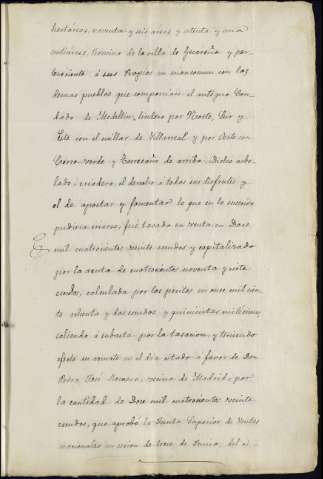 hectáreas, noventa y seis areas y ochenta y una
centiáreas, término de la villa de Guareña y per-
teneciente á sus Propios en mancomun con los
demas pueblos que componian el antiguo Con-
dado de Medellin, lindero por Norte, Sur y
Este con el millar de Villarreal y por Oeste con
Cerro-verde y de arriba: Dicho arbo-
lado, el derecho á todos sus disfrutes y
el de apostar y fomentar lo que en lo sucesivo
pudiera criarse, fué tasado en venta, en Doce
mil cuatrocientos veinte escudos y capitalizado
por la renta de cuatrocientos noventa y siete
escudos, calculada por los peritos en once mil cien-
to ochenta y dos escudos y quinientas milésimas,
saliendo á subasta por la tasacion, y teniendo
efecto su remate en el dia citado á favor de Don
Pedro José vecino de Madrid, por
la cantidad de Doce mil cuatrocientos veinte
escudos, que aprobó la Junta Superior de Ventas
nacionales en sesion de trece de Junio, del ci-